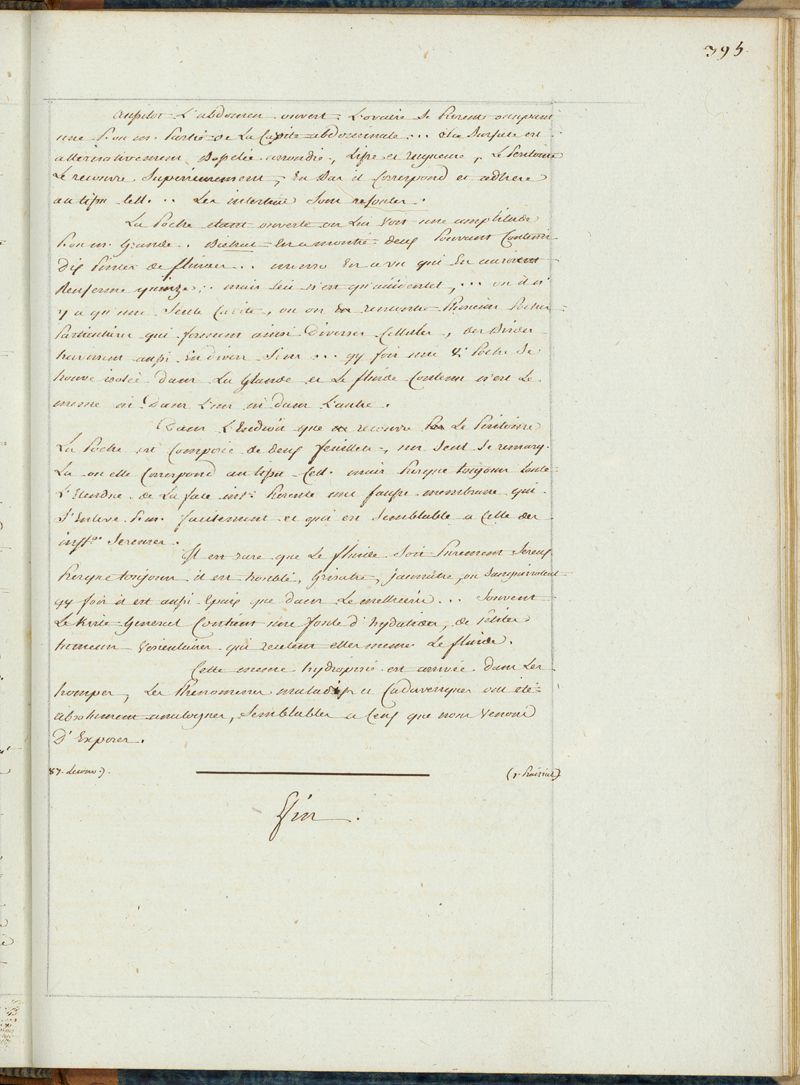 395.
aussitot L'abdomen ouvert, L'ovaire se presente occupant
une P. ou m. Partie de La Cavité abdominale... Sa surface est
alternativement Bosselée arrondie, Lisse et rugueuse, Le Peritoine
Le recouvre Superieurement, En bas il Correspond et adhere
au tissu Cell... Les intestins sont refoulés.
La Poche etant ouverte on Lui Voit une amplitude
P. ou m. Grande.. Bichat En a montré deux Pouvant Contenir
Dix Pintes de fluides.. on En a vu qui En auroient
Renfermé quinze.. mais Ceci n'est qu'accidentel,... ou il n'
y a qu'une Seule Cavité, ou on rencontre Plusieurs Poches
Particulieres qui forment ainsi Diverses Cellules, des Brides
traversent aussi En divers Sens... qq fois une Poche Se
trouve isolée Dans La Glande et Le fluide Contenu n'est Le
meme ni Dans L'un ni dans L'autre.
Dans L'Endroit que recouvre Le Péritoine
La Poche est Composée de deux feuillets, un Seul Se remarq.
La ou elle Correspond au tissu Cell. mais Presque toujours toute
L'Etendue de La face int. Presente une fausse membrane qui
S'Enleve P. ou m. facilement et qui est Semblable a Celle des
Sereuses.
Il est rare que Le fluide Soit Purement Sereux
Presque toujours il est trouble, Grisatre, jaunatre, ou Sanguinolent
qq fois il est aussi Epais que dans Le melliceris... Souvent
Le Kyste General Contient une foule d'hydatides, de Petites
tumeurs Vesiculaires qui recelent elles memes Le fluide.
Cette meme hydropisie est arrivée Dans Les
trompes, Les Phenomenes maladifs et Cadaveriques ont été
absolument analogues, Semblables a Ceux que nous Venons
D'Exposer.
87. Lecons.)
Fin.